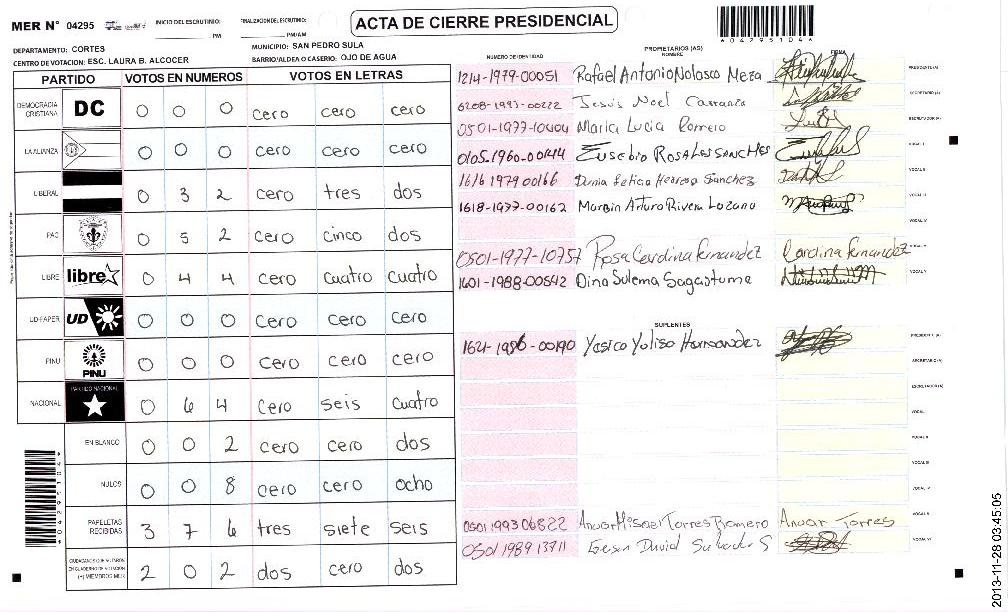 MER Nº 04295
INICIO DEL ESCRUTINIO: PM
FINALIZACION DEL ESCRUTINIO: PM/AM
ACTA DE CIERRE PRESIDENCIAL
*04295104*
DEPARTAMENTO: CORTES
MUNICIPIO: SAN PEDRO SULA
CENTRO DE VOTACION: ESC. LAURA B. ALCOCER
BARRIO/ALDEA O CASERIO: OJO DE AGUA
PARTIDO VOTOS EN NUMEROS VOTOS EN LETRAS
DEMOCRACIA CRISTIANA DC 0 0 0 cero cero cero
LA ALIANZA 0 0 0 cero cero cero
LIBERAL 0 3 2 cero tres dos
PAC 0 5 2 cero cinco dos
LIBRE libre 0 4 4 cero cuatro cuatro
UD-FAPER UD 0 0 0 cero cero cero
PINU PINU 0 0 0 cero cero cero
NACIONAL PARTIDO NACIONAL 0 6 4 cero seis cuatro
EN BLANCO 0 0 2 cero cero dos
NULOS 0 0 8 cero cero ocho
PAPELETAS RECIBIDAS 3 7 6 tres siete seis
CIUDADANOS QUE VOTARON EN CUADERNO DE VOTACION (+) MIEMBROS MER 2 0 2 dos cero dos
PROPIETARIOS (AS)
NUMERO DE IDENTIDAD NOMBRE FIRMA
1214-1979-00051 Rafael Antonio Nolasco Meza PRESIDENTE (A)
6208-1993-00222 Jesus Noel Carranza SECRETARIO (A)
0501-1977-10404 Maria Lucia Romero ESCRUTADOR (A)
0105-1960-00414 Eusebio ROSALES SANCHES VOCAL I
1616 1979 00166 Dunia Leticia Herrera Sanchez VOCAL II
1618-1977-00162 Marbin Arturo Rivera Lozano VOCAL III
VOCAL IV
0501-1977-10757 Rosa Carolina Fernandez Carolina Fernandez VOCAL V
1601-1988-00542 Dina Sulema Sagastume VOCAL VI
SUPLENTES
1621-1986-00190 Yesica Yolisa Hernandez PRESIDENTE (A)
SECRETARIO (A)
ESCRUTADOR (A)
VOCAL I
VOCAL II
VOCAL III
VOCAL IV
0501 1993 06822 Anuar Misael Torres Romero Anuar Torres VOCAL V
0501 1989 13711 Gerson David VOCAL VI
*04295104*
2013-11-28 03:45:05